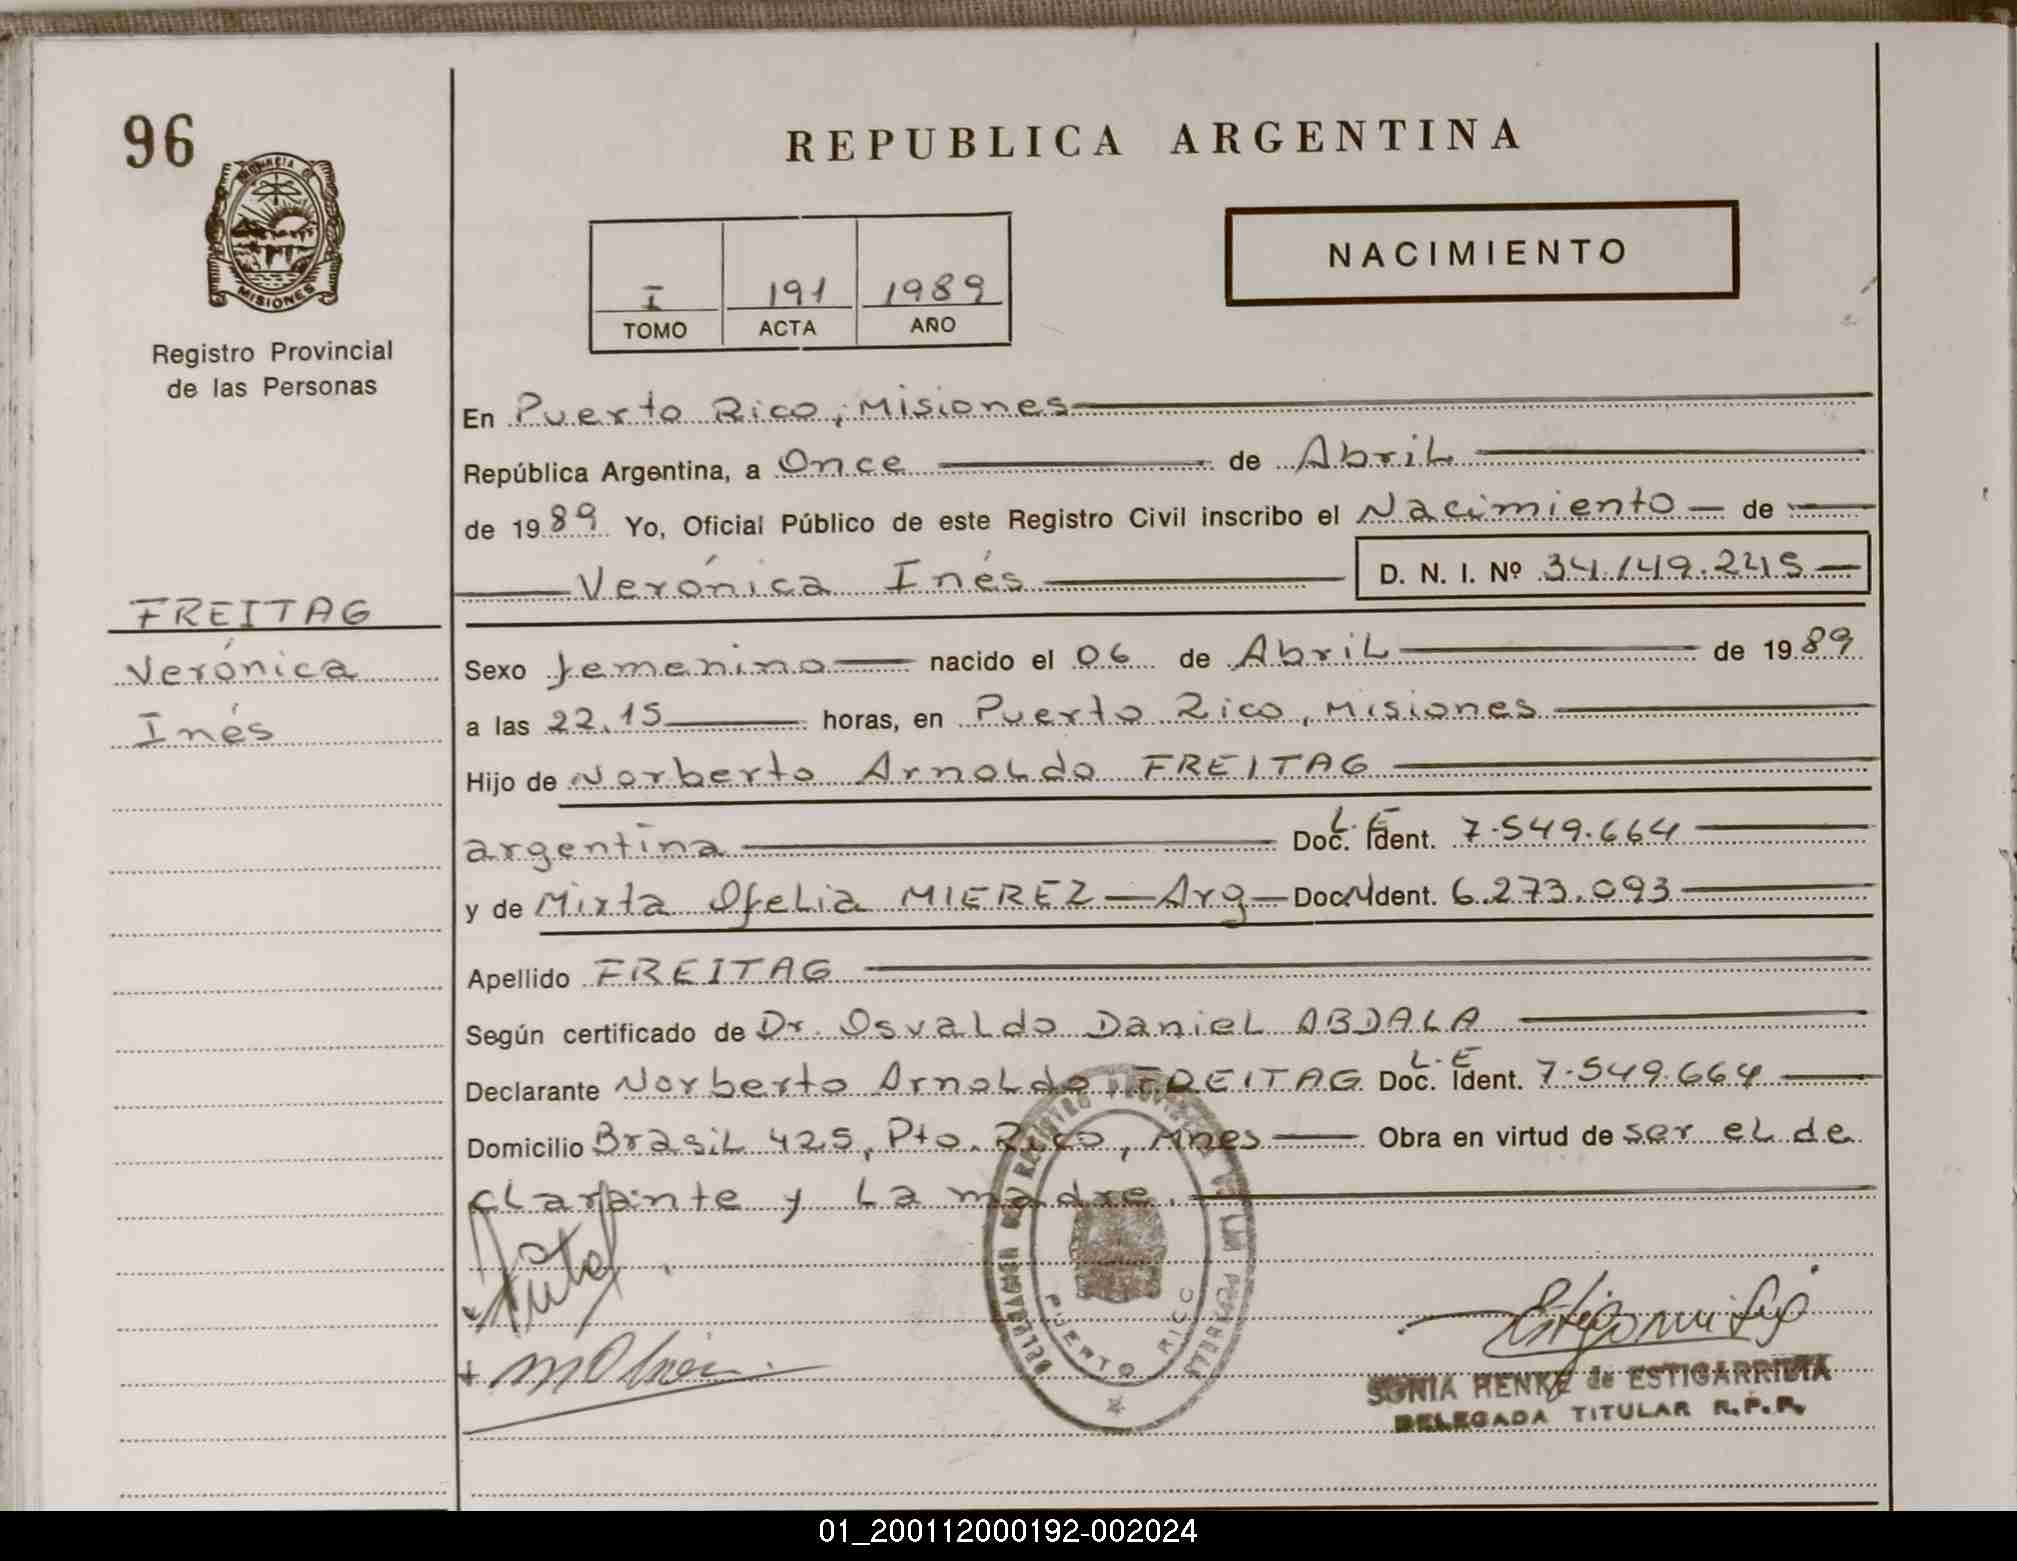 96
REPUBLICA ARGENTINA
PROVINCIA
MISIONES
Registro Provincial
de las Personas
I 191 1989
TOMO ACTA AÑO
NACIMIENTO
En Puerto Rico, Misiones
República Argentina, a Once de Abril
de 1989 Yo, Oficial Público de este Registro Civil inscribo el Nacimiento de
Verónica Inés D. N. I. Nº 34.149.245
FREITAG
Verónica
Inés
Sexo femenino nacido el 06 de Abril de 1989
a las 22.15 horas, en Puerto Rico, Misiones
Hijo de Norberto Arnoldo FREITAG
argentina Doc. Ident. L.E 7.549.664
y de Mirta Ofelia MIEREZ - Arg - Doc. Ident. 6.273.093
Apellido FREITAG
Según certificado de Dr. Osvaldo Daniel ABDALA
Declarante Norberto Arnoldo FREITAG Doc. Ident. L.E 7.549.664
Domicilio Brasil 425, Pto. Rico, Mnes Obra en virtud de ser el de
clarante y la madre.
PUERTO RICO
SONIA HENKE de ESTIGARRIBIA
DELEGADA TITULAR R.P.P.
01_200112000192-002024